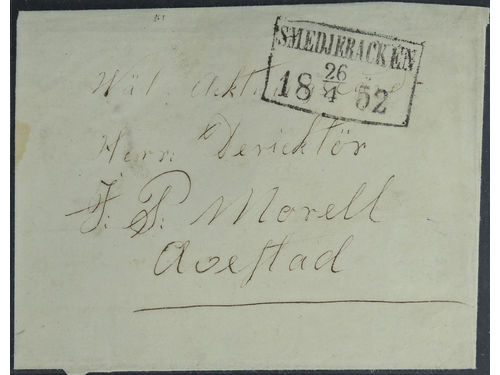 SMEDJEBACKEN
18 26/4 52
Wäl
Herr Dericktör
J. P. Morell
Avestad